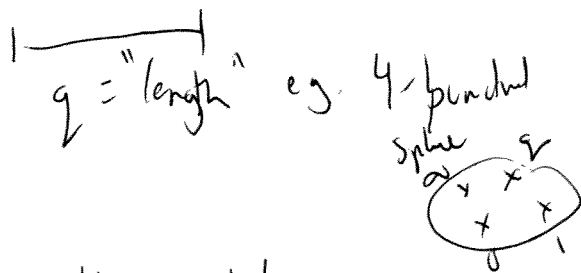 q = "length" e.g. 4-punctured
sphere
∞ q
0 1